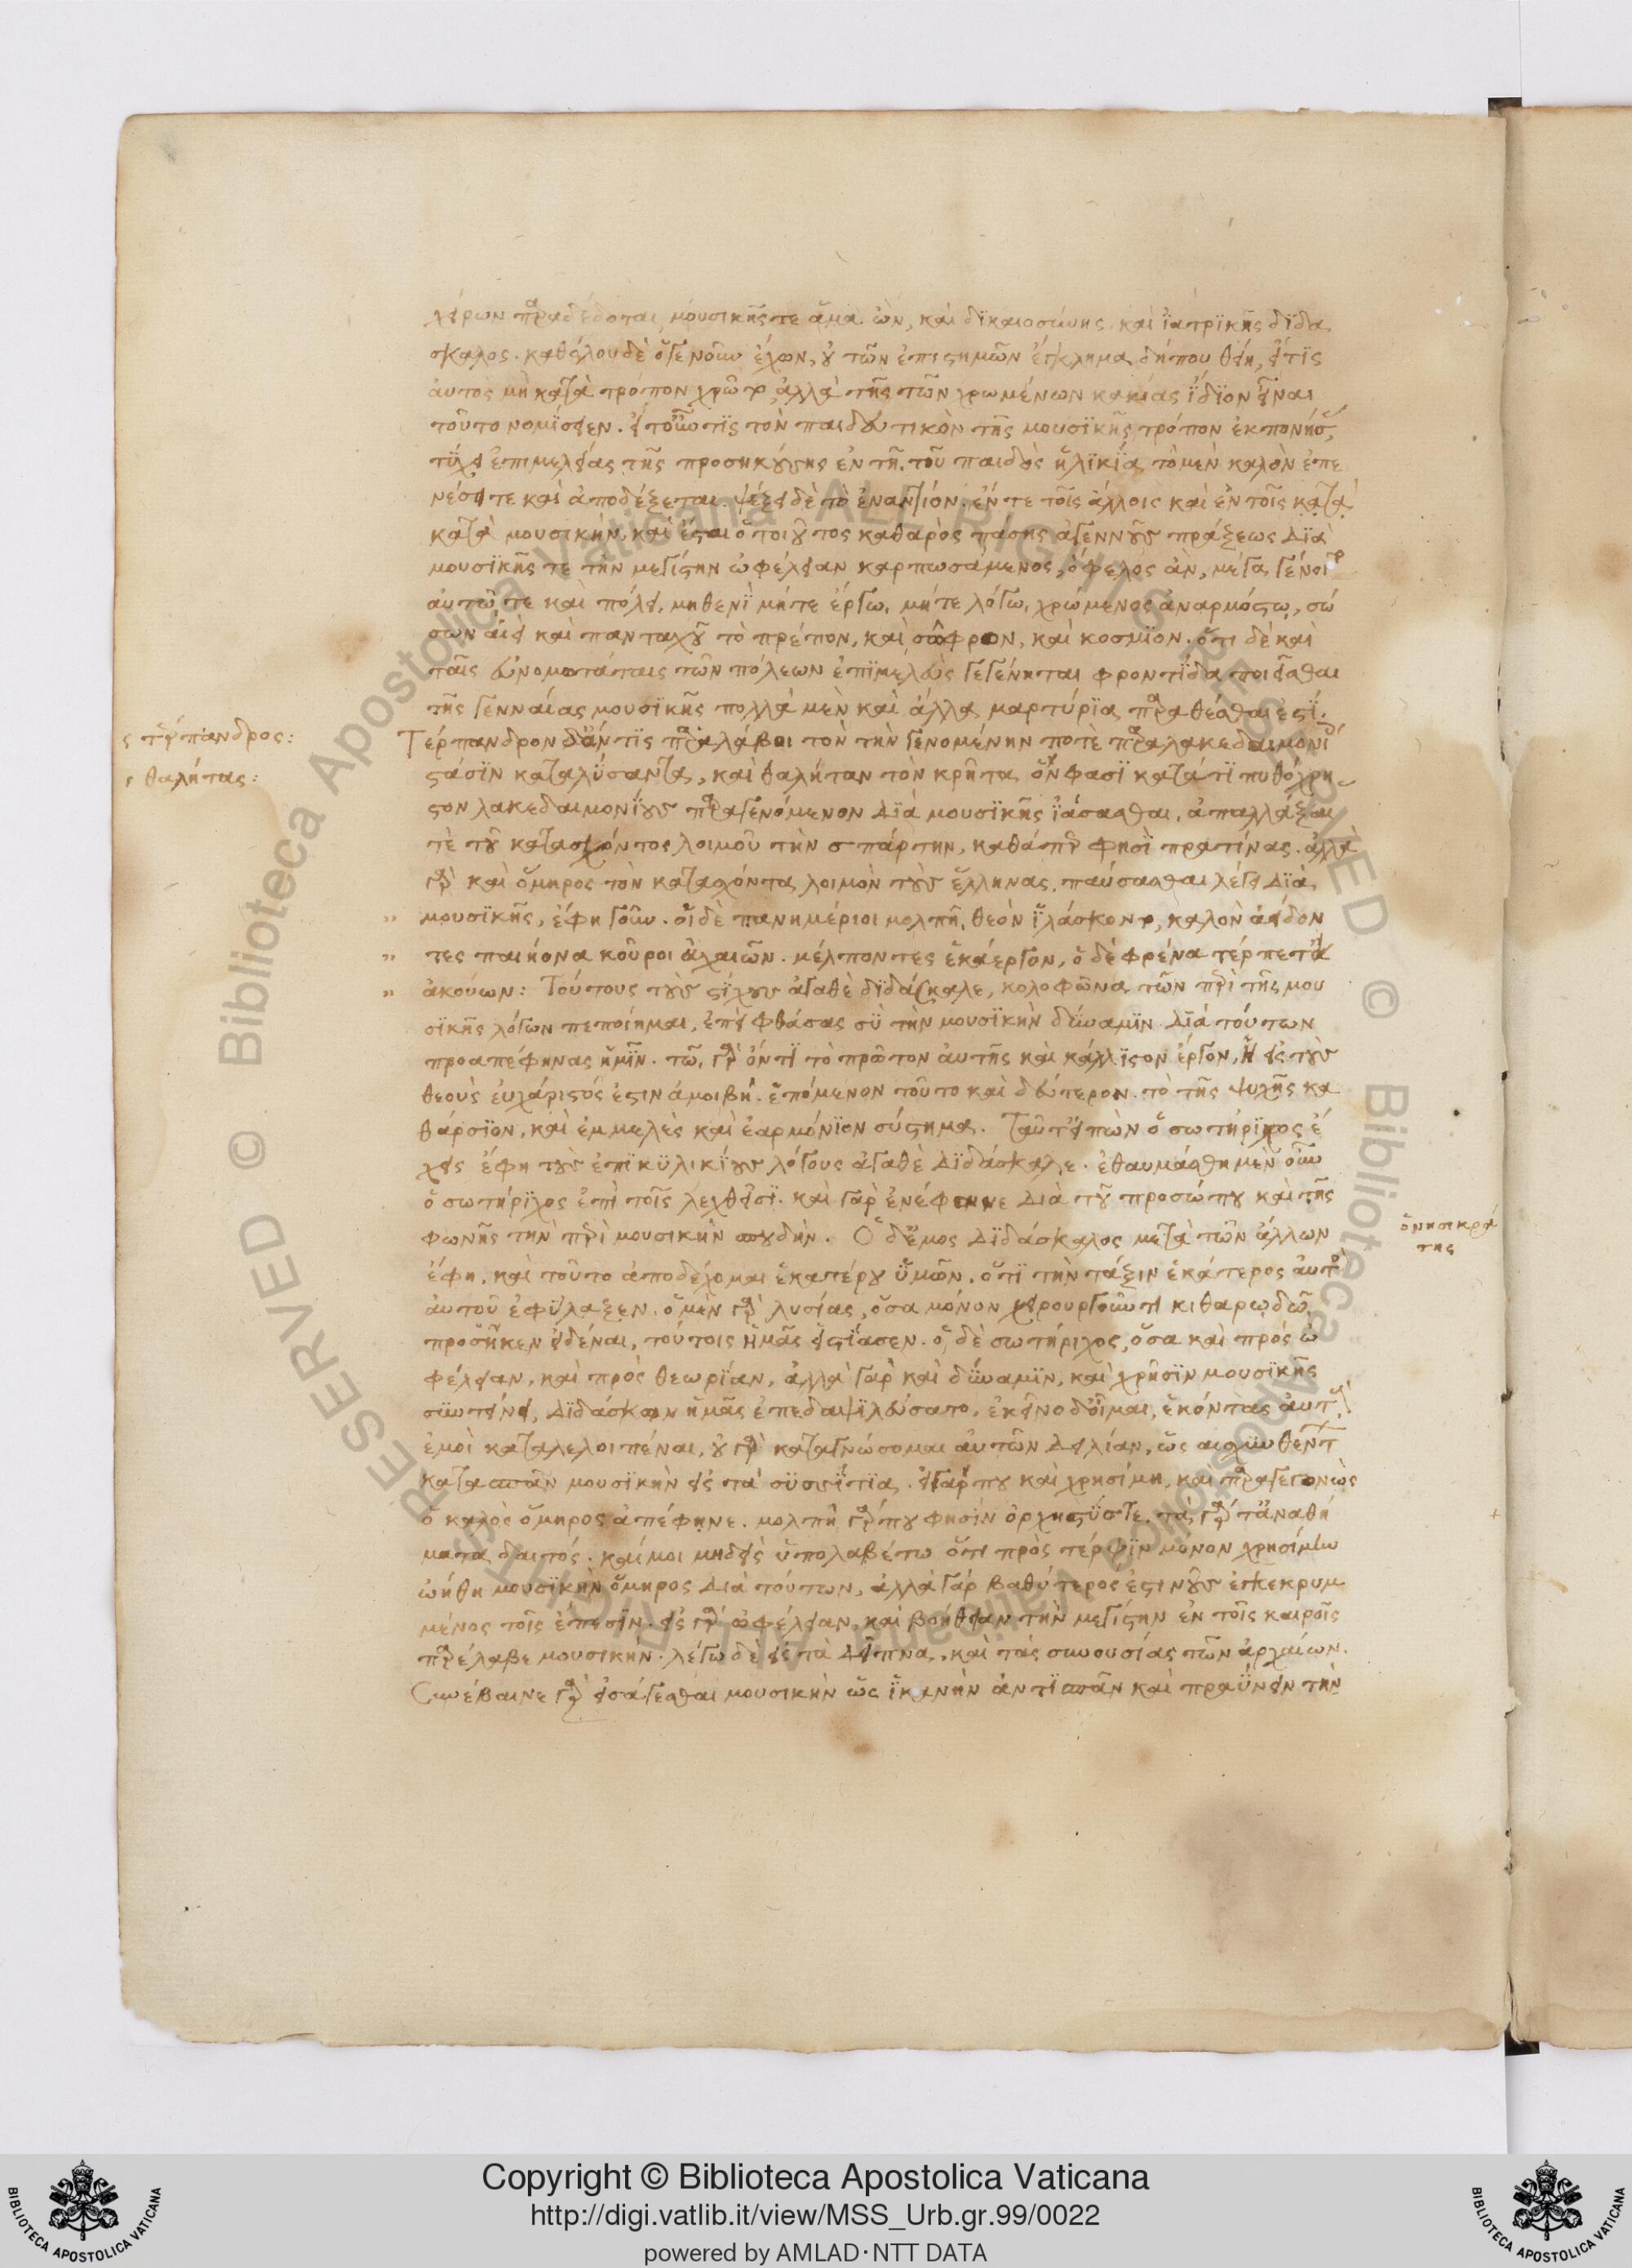 χείρων παραδέδοται μουσικῆς τε ἅμα ὢν, καὶ δϊκαιοσύνης καὶ ἰατρϊκῆς δϊδα
σκαλος. καθόλου δὲ ὅ γε νοῦν ἔχων, οὐ τῶν ἐπιστημῶν ἔγκλημα δήπου θείη, εἴ τϊς
αὐτοῖς μὴ κατὰ τρόπον χρῶτο, ἀλλὰ τῆς τῶν χρωμένων κακίας ἴδϊον εἶναι
τοῦτο νομίσειεν. εἰ γοῦν τϊς τὸν παιδευτικὸν τῆς μουσϊκῆς τρόπον ἐκπονήσας
τύχει ἐπιμελείας τῆς προσηκούσης ἐν τῆ τοῦ παιδὸς ἡλϊκίᾳ, τὸ μὲν καλὸν ἐπαι
νέσει τε καὶ ἀποδέξεται. ψέξει δὲ τὸ ἐναντίον. ἔν τε τοῖς ἄλλοις καὶ ἐν τοῖς κατὰ
κατὰ μουσικήν, καὶ ἔσται ὁ τοιοῦτος καθαρὸς πάσης ἀγεννοῦς πράξεως διὰ
μουσϊκῆς τε τὴν μεγίστην ὠφέλειαν καρπωσάμενος, ὄφελος ἂν, μέγα γένοιτο
αὐτῶ τε καὶ πόλει, μηθενὶ μήτε ἔργω, μήτε λόγω, χρώμενος ἀναρμόστω, σώ
σων ἀεὶ καὶ πανταχοῦ τὸ πρέπον, καὶ σῶφρον, καὶ κοσμϊον. ὅτι δὲ καὶ
ταῖς εὐνομωτάταις τῶν πόλεων ἐπϊμελὲς γεγένηται φροντίδα ποιεῖσθαι
τῆς γενναίας μουσϊκῆς πολλὰ μὲν καὶ ἄλλα μαρτύρϊα παραθέσθαι ἐστί.
ς τέρπανδρος:
Τέρπανδρον δ' ἄν τϊς παραλάβοι τὸν τὴν γενομένην ποτὲ παρὰ λακεδαιμονίοις
ς θαλήτας:
στάσϊν καταλύσαντα, καὶ θαλήταν τὸν κρῆτα ὅν φασϊ κατά τϊ πυθόχρη
στον λακεδαιμονίους παραγενόμενον διὰ μουσϊκῆς ἰάσασθαι, ἀπαλλάξαι
τὲ τοῦ κατασχόντος λοιμοῦ τὴν σπάρτην, καθάπερ φησὶ πρατίνας. ἀλλὰ
γὰρ καὶ ὅμηρος τὸν κατασχόντα λοιμὸν τοὺς ἕλληνας, παύσασθαι λέγει διὰ
„ μουσϊκῆς, ἔφη γοῦν. οἱ δὲ πανημέριοι μολπῆ, θεὸν ἱλάσκοντο, καλὸν ἀείδον
„ τες παιήονα κοῦροι ἀχαιῶν. μέλποντες ἑκάεργον, ὁ δὲ φρένα τέρπετ'
„ ἀκούων: Τούτους τοὺς στίχους ἀγαθὲ δϊδάσκαλε, κολοφῶνα τῶν περὶ τῆς μου
σϊκῆς λόγων πεποίημαι, ἐπεὶ φθάσας σὺ τὴν μουσϊκὴν δύναμϊν διὰ τούτων
προαπέφηνας ἡμῖν. τῶ γὰρ ὄντϊ τὸ πρῶτον αὐτῆς καὶ κάλλϊστον ἔργον, ἡ εἰς τοὺς
θεοὺς εὐχάριστός ἐστιν ἀμοιβή. ἑπόμενον τούτο καὶ δεύτερον τὸ τῆς ψυχῆς κα
θάρσϊον, καὶ ἐμμελὲς καὶ ἐαρμόνϊον σύστημα. Ταῦτ' εἰπὼν ὁ σωτήρϊχος ἔ
χεις ἔφη τοὺς ἐπϊκυλικίους λόγους ἀγαθὲ δϊδάσκαλε. ἐθαυμάσθη μὲν οὖν
ὁ σωτήρϊχος ἐπὶ τοῖς λεχθεῖσϊ. καὶ γὰρ ἐνέφαινε διὰ τοῦ προσώπου καὶ τῆς
φωνῆς τὴν περὶ μουσικὴν σπουδήν. Ὁ δ' ἐμὸς δϊδάσκαλος μετὰ τῶν ἄλλων
ὀνησικρά
της
ἔφη, καὶ τοῦτο ἀποδέχομαι ἑκατέρου ὑμῶν. ὅτϊ τὴν τάξιν ἑκάτερος αὐτὸς
αὑτοῦ ἐφύλαξεν. ὁ μὲν γὰρ λυσίας, ὅσα μόνον χειρουργοῦντι κιθαρωδῶ
προσῆκεν εἰδέναι, τούτοις ἡμᾶς εἱστίασεν. ὁ δὲ σωτήριχος, ὅσα καὶ πρὸς ὠ
φέλειαν, καὶ πρὸς θεωρίαν, ἀλλὰ γὰρ καὶ δύναμϊν, καὶ χρῆσϊν μουσϊκῆς
συντείνει, διδάσκων ἡμᾶς ἐπεδαψϊλεύσατο. ἐκεῖνο δ' οἶμαι, ἑκόντας αὐτοὺς
ἐμοὶ καταλελοιπέναι, οὐ γὰρ καταγνώσομαι αὐτῶν δειλίαν, ὡς αἰσχυνθέντων
κατασπᾶν μουσϊκὴν εἰς τὰ συσσίτϊα. εἰ γάρ που καὶ χρησίμη, καὶ παραγεγονὼς
ὁ καλὸς ὅμηρος ἀπέφηνε. μολπὴ γάρ που φησὶν ὀρχηστύς τε, τὰ γάρ τ' ἀναθή
ματα δαιτός. καί μοι μηδεὶς ὑπολαβέτω ὅτι πρὸς τέρψϊν μόνον χρησίμην
ὠήθη μουσϊκὴν ὅμηρος διὰ τούτων, ἀλλὰ γὰρ βαθύτερός ἐστι νοῦς ἐγκεκρυμ
μένος τοῖς ἔπεσϊν. εἰς γὰρ ὠφέλειαν, καὶ βοήθειαν τὴν μεγίστην ἐν τοῖς καιροῖς
παρέλαβε μουσικήν. λέγω δὲ εἰς τὰ δεῖπνα, καὶ τὰς συνουσίας τῶν ἀρχαίων.
Συνέβαινε γὰρ εἰσάγεσθαι μουσικὴν ὡς ἱκανὴν ἀντισπᾶν καὶ πραΰνειν τὴν
Copyright © Biblioteca Apostolica Vaticana
http://digi.vatlib.it/view/MSS_Urb.gr.99/0022
powered by AMLAD·NTT DATA